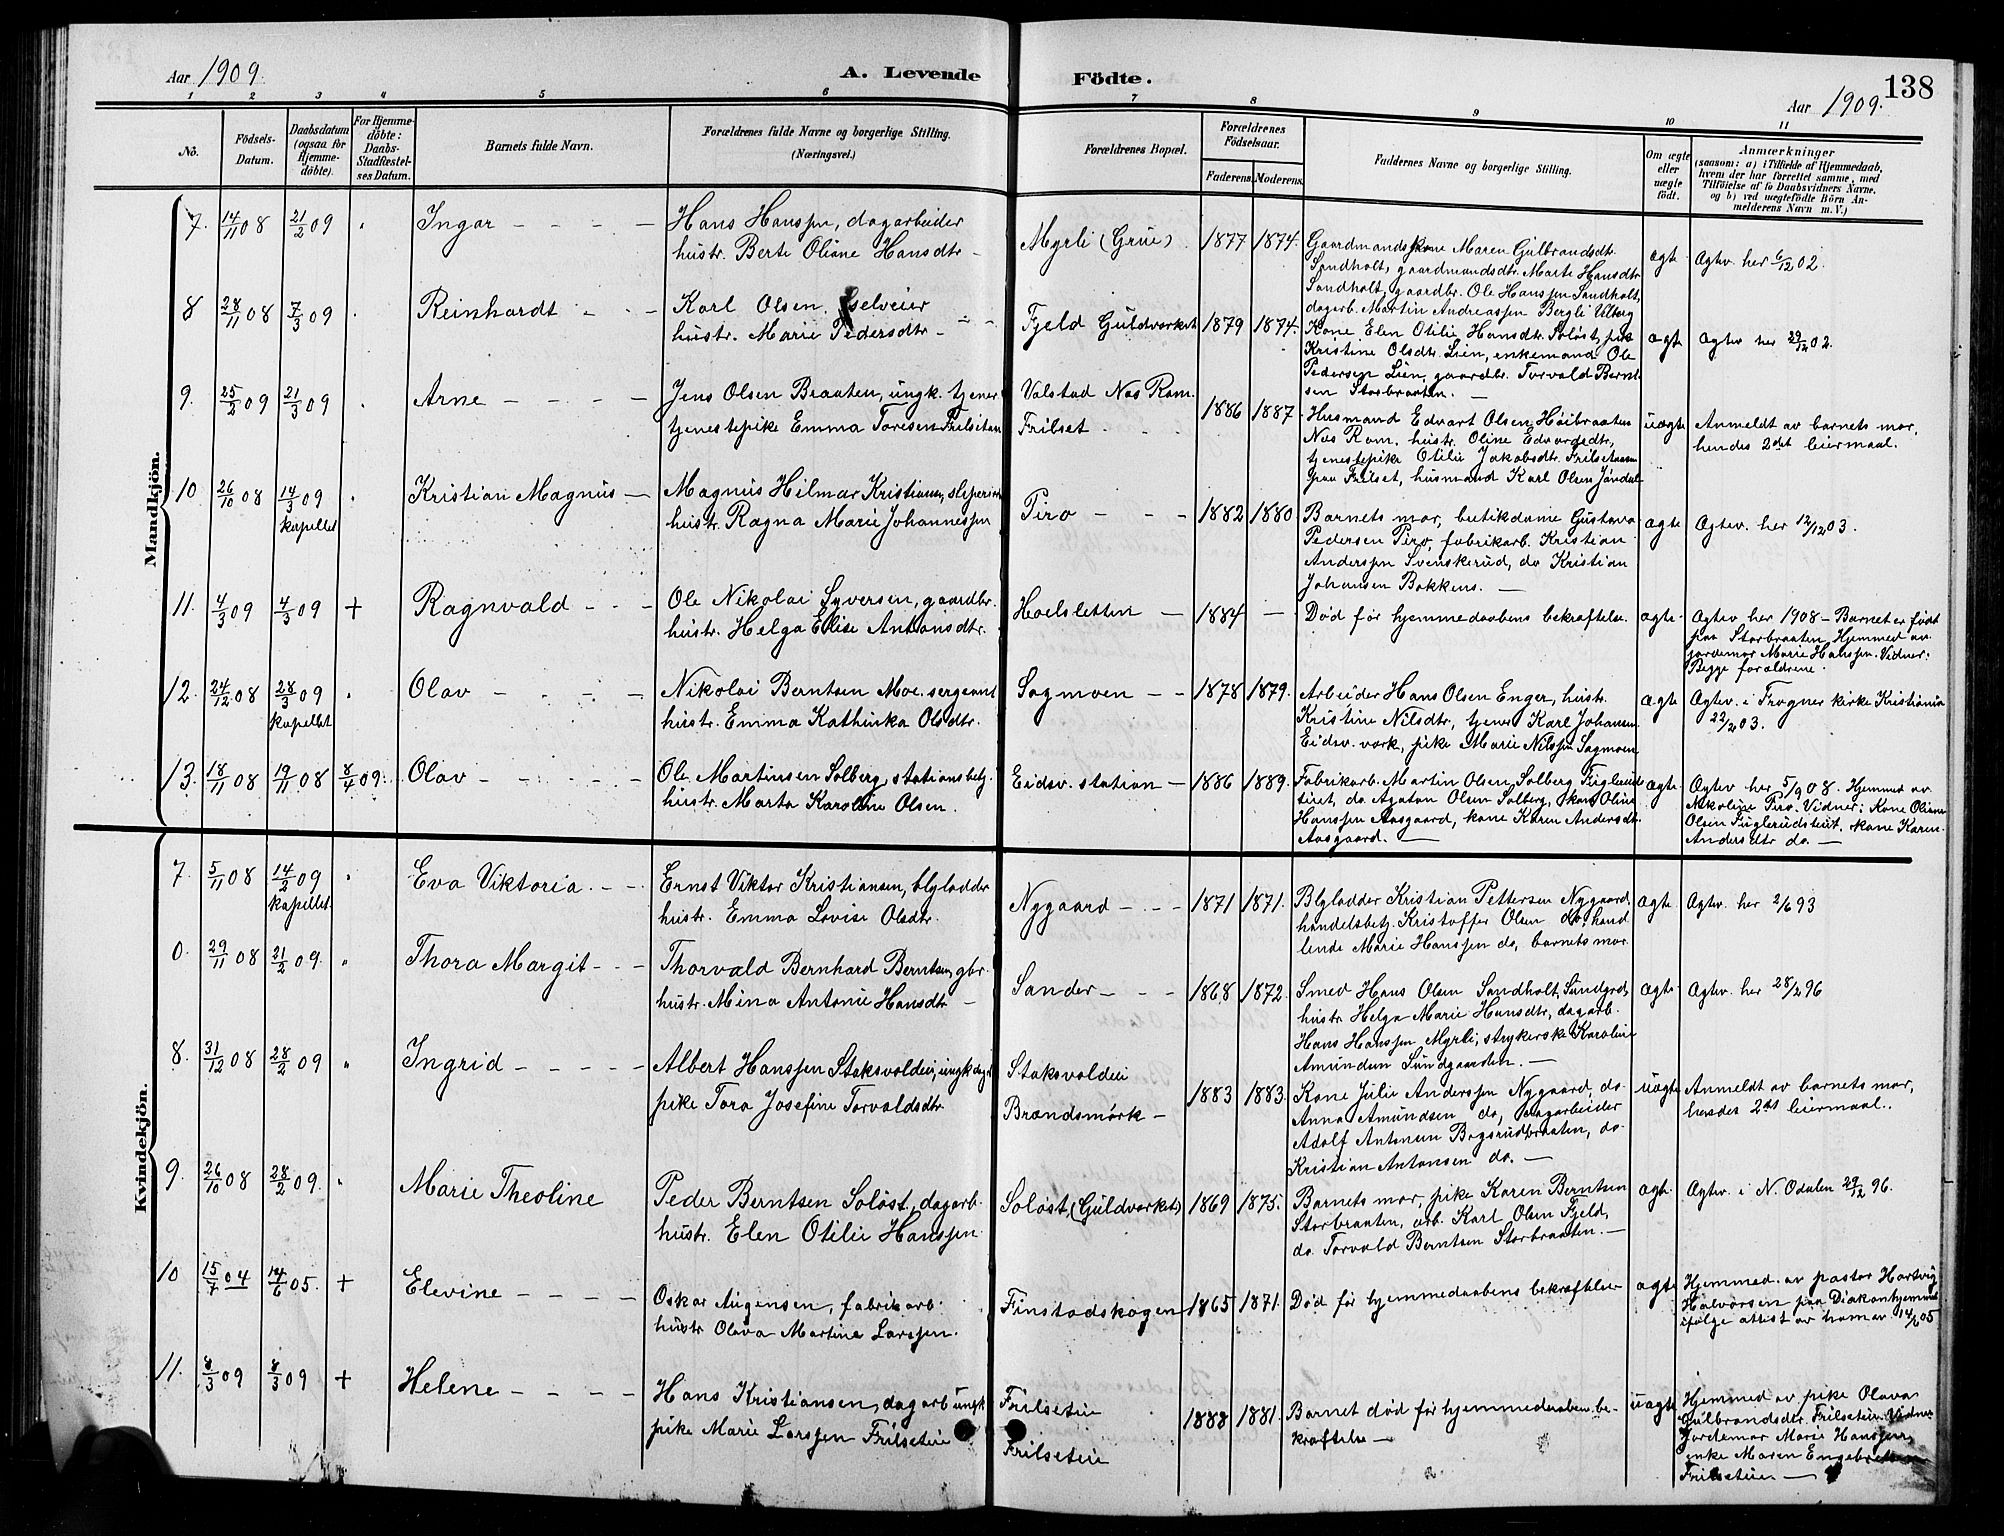 Aar 1909.
A. Levende
Födte.
138
Aar 1909.
1 2 3 4 5 6 7 8 9 10 11
No.
Födsels-Datum.
Daabsdatum (ogsaa for Hjemmedöbte).
For Hjemmedöbte: Daabs-Stadfæstelses Datum.
Barnets fulde Navn.
Forældrenes fulde Navne og borgerlige Stilling.
(Næringsvei.)
Forældrenes Bopæl.
Forældrenes Födselsaar.
Faderens. Moderens.
Faddernes Navne og borgerlige Stilling.
Om ægte eller uægte født.
Anmærkninger
(saasom: a) i Tilfælde af Hjemmedaab, hvem der har forrettet samme, med Tilföielse af to Daabsvidners Navne, og b) ved uægtefödte Börn Anmelderens Navn m. V.)
Mandkjön.
7. 14/11 08 21/2 09 Ingar
Hans Hanssen, dagarbeider
hustr. Berte Oliane Hansdtr
Myrli (Grue) 1877 1874.
Gaardmandskone Maren Gulbrandsdtr.
Sandholt, gaardmandsdtr. Marte Hansdtr
Sandholt, gaardbr. Ole Hanssen Sandholt,
dagarb. Martin Andreassen Bergli
ægte Ægtev. her 6/12 02.
8 28/11 08 7/3 09 Reinhardt
Karl Olsen, selveier
hustr. Marie Pedersdtr
Fjeld Guldverket 1879 1874.
Kone Elen Otilie Hansdtr. Soløst, pike
Kristine Olsdtr. Lien, enkemand Ole
Pedersen Lien, gaardbr. Torvald Bernt
sen Storbraaten.
ægte Ægtev her 29/12 02.
9. 25/2 09 21/3 09 Arne
Jens Olsen Braaten, ungk. tjener
tjenestepike Emma Toresen Frilsetan
Valstad Nes Rom.
Frilset 1886 1887
Husmand Edvart Olsen Høibraaten
Nes Rom., hustr. Oline Edvardsdtr,
tjenestepike Otilie Jakobsdtr. Frilsetaasen
paa Frilset, husmand Karl Olsen Jøndal
uægte Anmeldt av barnets mor,
hendes 2det leiermaal.
10 26/10 08 14/3 09 kapellet Kristian Magnus
Magnus Hilmar Kristiansen, sliperiarb
hustr. Ragna Marie Johannessen
Piro 1882 1880
Barnets mor, butikdame Gustava
Pedersen Piro, fabrikarb. Kristian
Anderssen Svenskerud, do Kristian
Johansen Bakkens.
ægte Ægtev. her 12/12 03.
11. 4/3 09 4/3 09 + Ragnvald
Ole Nikolai Syversen, gaardbr.
hustr. Helga Elise Antonsdtr.
Hoelsletten 1884 —
Død før hjemmedaabens bekræftelse.
ægte. Ægtev her 1908 - Barnet er født
paa Storbraaten Hjemmed av
jordemor Marie Hanssen. Vidner:
Begge forældrene.
12. 24/12 08 28/3 09 kapellet Olav
Nikolai Berntsen Moe, sergeant
hustr. Emma Kathinka Olsdtr.
Sagmoen 1878 1879.
Arbeider Hans Olsen Enger, hustr.
Kristine Nilsdtr, tjener Karl Johansen
Eidsv. verk, pike Marie Nilssen Sagmoen
ægte Ægtev. i Frogner kirke Kristiania
22/2 03.
13. 18/11 08 19/11 08 8/4 09. Olav
Ole Martinsen Solberg, stationsbetj.
hustr. Marta Karoline Olsen.
Eidsv. station 1886 1889.
Fabrikarb. Martin Olsen Solberg Fuglerud
teiet, do. Agaton Olsen Solberg, kone Oline
Hanssen Aasgaard, kone Karen Andersdtr.
Aasgaard.
ægte Ægtev her 5/9 08. Hjemmed av
Nikoline Piro. Vidner: Kone Oliane
Olsen Fuglerudsteiet, kone Karen
Andersdtr do.
Kvindekjön.
7. 5/11 08 14/2 09 kapellet Eva Viktoria
Ernst Viktor Kristiansen, blyladder
hustr. Emma Lovise Olsdtr.
Nygaard 1871 1871.
Blyladder Kristian Pettersen Nygaard
handelsbetj. Kristoffer Olsen do, hand
lende Marie Hanssen do, barnets mor.
ægte. Ægtev. her 2/6 93
0. 29/11 08 21/2 09. Thora Margit
Thorvald Bernhard Berntsen, gbr.
hustr. Mina Antonie Hansdtr
Sander 1868 1872.
Smed Hans Olsen Sandholt, Sundgrd,
hustr Helga Marie Hansdtr, dagarb.
Hans Hanssen Myrli, strykerske Karoline
Amundsen Sundgaarden.
ægte. Ægtev her 28/2 96
8. 31/12 08 28/2 09 Ingrid
Albert Hanssen Staksvoldeie, ungk dag
pike Tora Josefine Torvaldsdtr
Staksvoldeie
Brandsmørk 1883 1883.
Kone Julie Anderssen Nygaard, do.
Anna Amundsen do, dagarbeider
Adolf Antonsen Bogsrudbraaten, do.
Kristian Antonsen do.
uægte Anmeldt av barnets mor,
hendes 2det leiermaal.
9. 26/10 08 28/2 09. Marie Theoline
Peder Berntsen Soløst, dagarb.
hustr. Elen Otilie Hanssen
Soløst, (Guldverket) 1869 1875.
Barnets mor, pike Karen Berntsen
Storbraaten, arb. Karl Olsen Fjeld,
do. Torvald Berntsen Storbraaten.
ægte. Ægtev. i N. Odalen 29/12 96.
10 15/7 04 14/6 05. + Elevine
Oskar Augensen, fabrikarb.
hustr Olava Martine Larssen.
Finstadskogen 1865 1871.
Død før hjemmedaabens bekræftelse
ægte Hjemmed. av pastor Hartvig
Halvorsen paa Diakonhjemmet
ifølge attest av 14/6 05
11. 8/3 09 8/3 09 + Helene
Hans Kristiansen, dagarb ungk
pike Marie Larssen Frilseteie
Frilseteie
Frilseteie 1888 1881.
Barnet død før hjemmedaabens be-
kræftelse
uægte Hjemmed av pike Olava
Gulbrandsdtr. Frilseteie Vidner
Jordemor Marie Hanssen,
enke Maren Engebretsen
Frilseteie